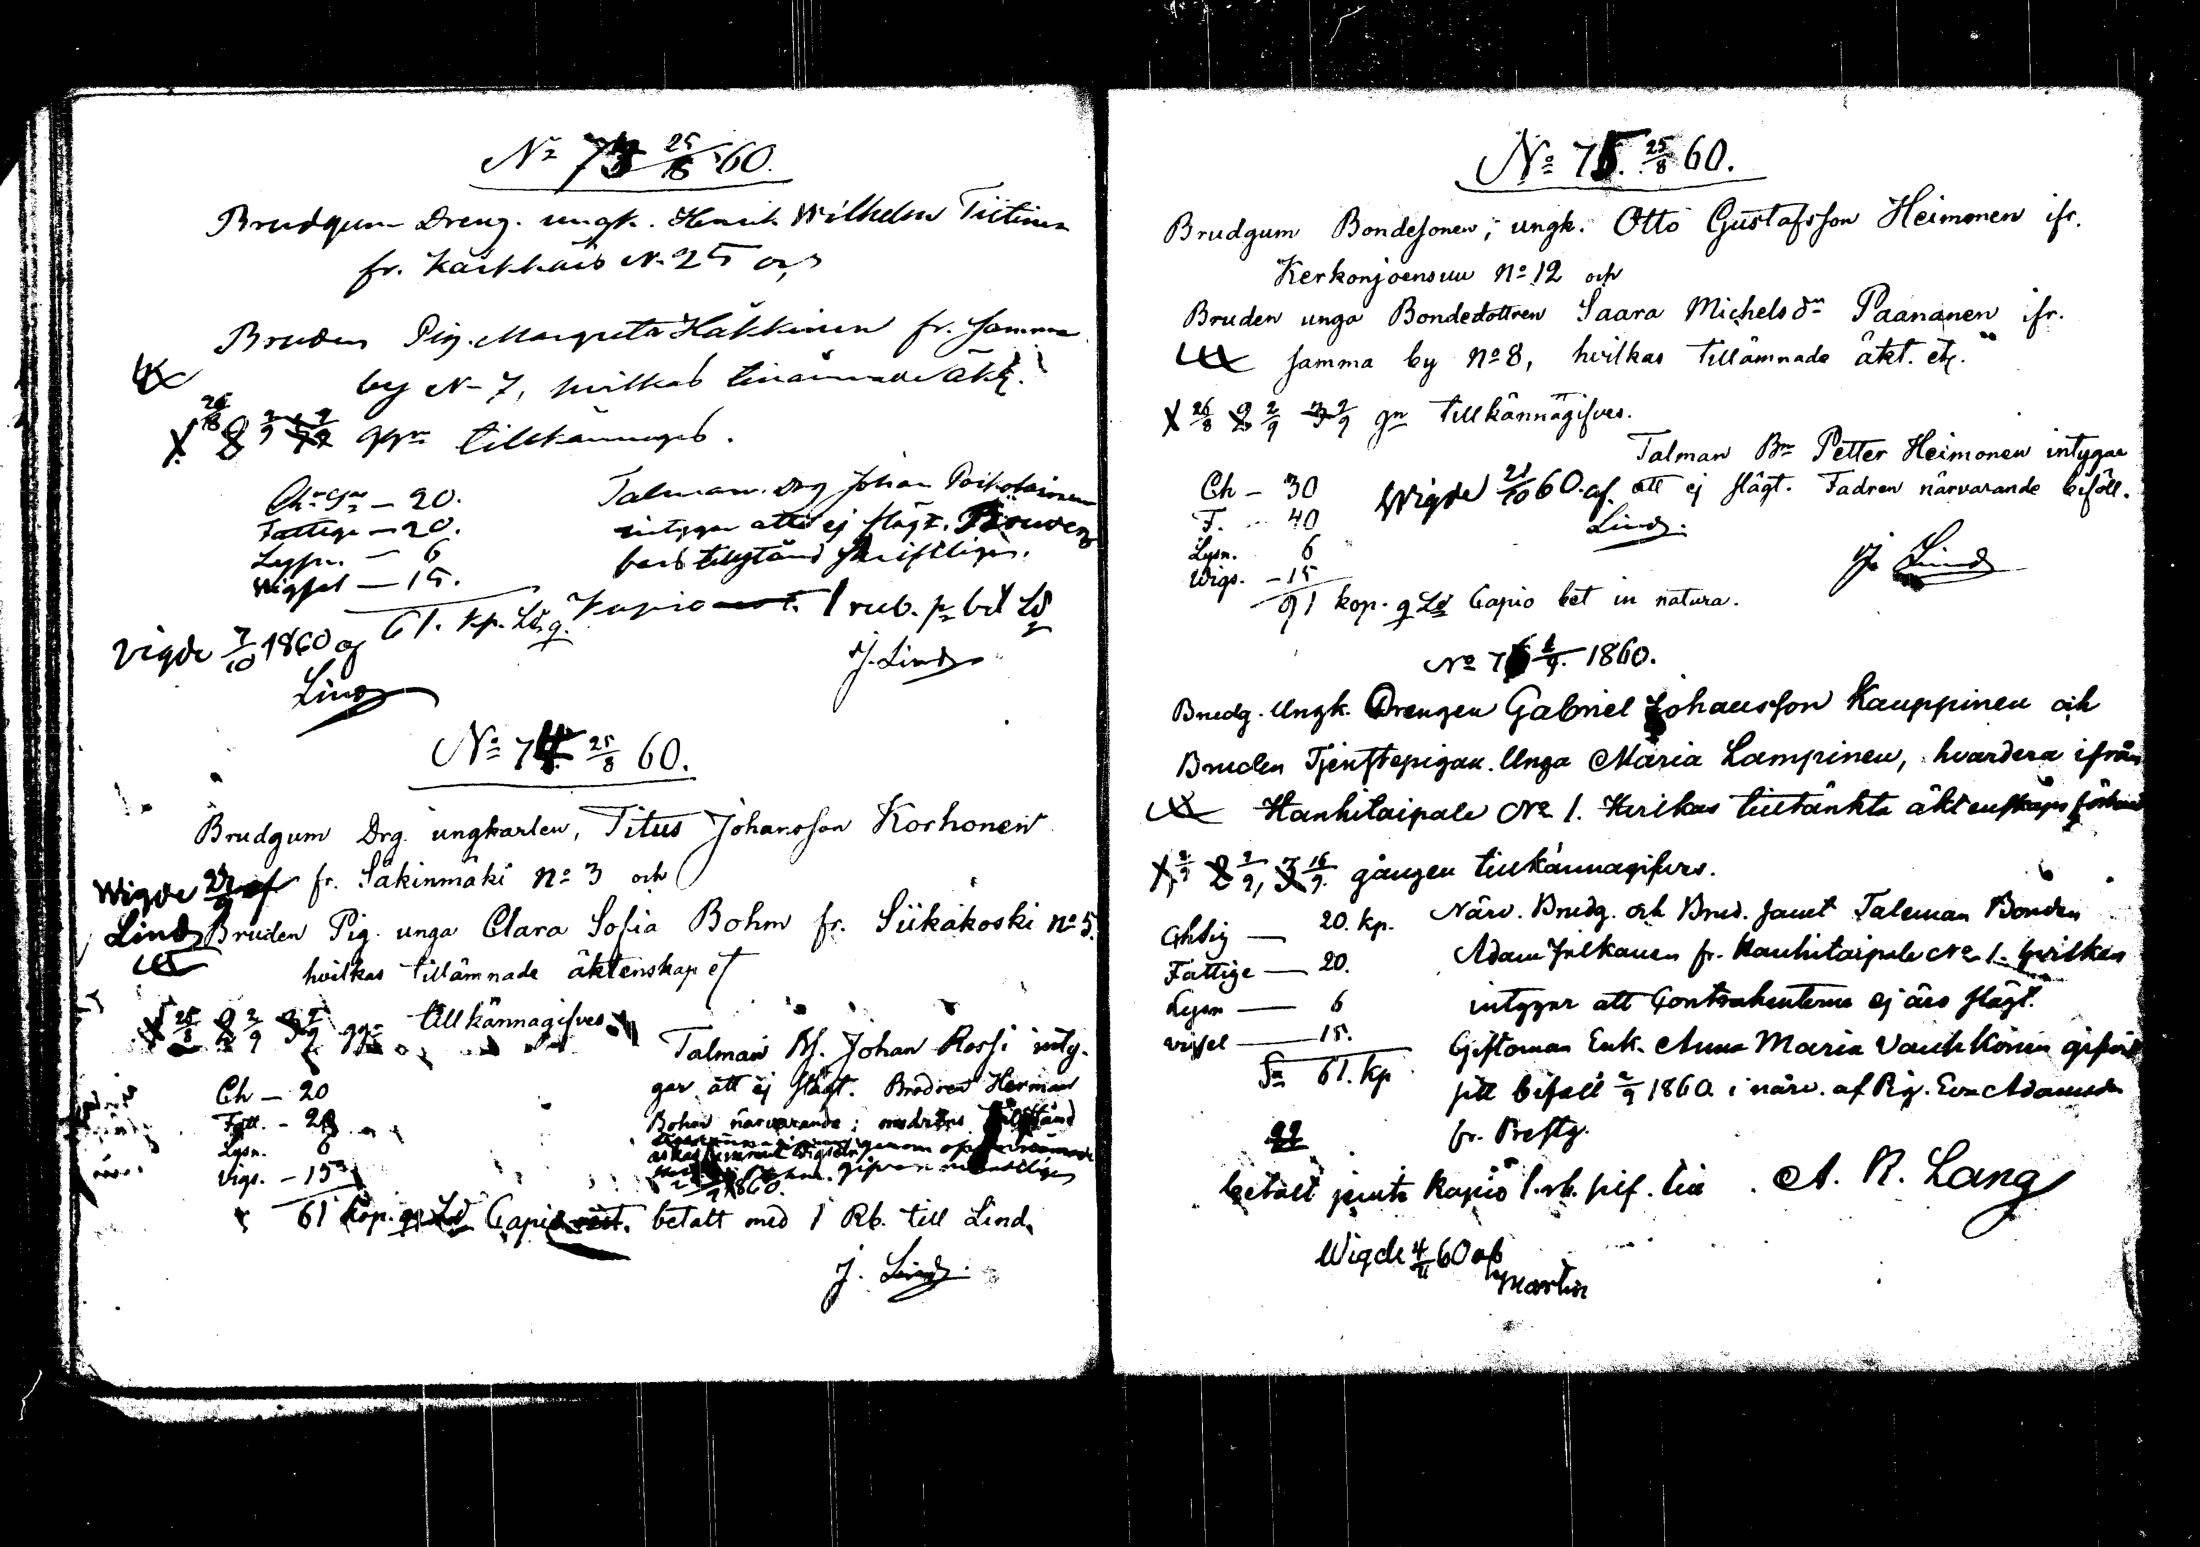 No 73 25/8 60.
Brudgum Dreng. ungk. Henrik Wilhelm Tiitinen
fr. Karkkais N. 25 och
Bruden Pig. Margreta Häkkinen fr. samma
by N- 7, hvilkas tillämnade äkt.
26/8 2 2/9 ggn tillkännages.
20.
Fattige - 20.
Lysn. - 6
Wigsel - 15.
61. kp. Ld. q.
Talman Drg Johan Poikolainen
intygar att ej slägt.
tillstånd skriftligen.
Kapio 1 rub. Ld
Vigde 7/10 1860 af
Lind
J. Lind
No 74. 25/8 60.
Brudgum Drg. ungkarlen, Titus Johansson Korhonen
Wigde af fr. Säkinmäki No 3 och
Lind Bruden Pig. unga Clara Sofia Bohm fr. Siikakoski no 5.
hvilkas tillämnade äktenskap
2 2/9 3 ggn tillkännagifves
Talman Johan Rossi inty-
gar att ej slägt. Brodren Herman
Bohm närvarande;
1860.
Ch - 20
Fatt. - 20
Lysn. 6
Vigs. - 15
61 kop. q Ld Capio rest. betalt med 1 Rb. till Lind.
J. Lind.
No 75. 25/8 60.
Brudgum Bondesonen, ungk. Otto Gustafsson Heimonen ifr.
Kerkonjoensuu No 12 och
Bruden unga Bondedottren Saara Michelsdn Paananen ifr.
samma by No 8, hvilkas tillämnade äkt. etc.
26/8 2 2/9 3 9/9 gn tillkännagifves.
Talman Bn Petter Heimonen intygar
Wigde 21/10 60. af att ej slägt. Fadren närvarande biföll.
Lind.
Ch - 30
F. - 40
Lysn. 6
Wigs. - 15
91 kop. q Ld Capio bet in natura.
J. Lind
No 76 2/9. 1860.
Brudg. Ungk. Drengen Gabriel Johansson Kauppinen och
Bruden Tjenstepigan Unga Maria Lampinen, hvardera ifrån
Hankitaipale No 1. Hvilkas tilltänkta äktenskaps förbund
2/9 2 9/9, 3 16/9. gången tillkännagifves.
20. kp.
Fattige - 20.
Lysn - 6
vigsel - 15.
Sa 61. kp
Närv. Brudg. och Brud. samt Taleman Bonden
Adam Jalkanen fr. Hankitaipale No 1. hvilken
intygar att Contrahenterne ej äro slägt.
Giftoman Enk. Anna Maria Vauhkonen gifvit
sitt bifall 2/9 1860 i närv. af Pig. Eva Adamsdr
fr. Prestg.
betalt jemte kapio 1. rb. silf. till
A. R. Lang
Wigde 4/11 60 af
Martin